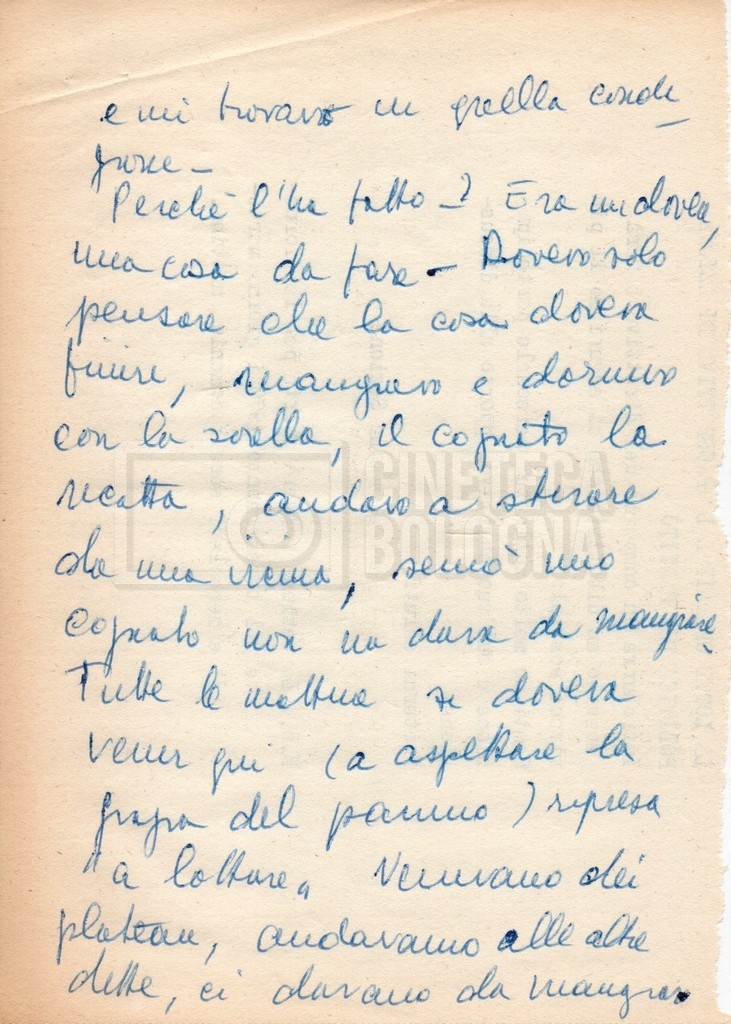 e mi trovavo in quella condi
zione –
Perché l'ha fatto – ? Era un dovere,
una cosa da fare – Dovevo solo
pensare che la cosa doveva
finire, mangiavo e dormivo
con la sorella, il cognato la
ricatta, andavo a stirare
da una, sennò mio
cognato non mi dava da mangiare
Tutte le mattine si doveva
venir qui (a aspettare la
grazia del panino) ripresa
"a lottare" Venivano dei
plateau, andavamo alle altre
dette, ci davano da mangiare
CINETECA
BOLOGNA